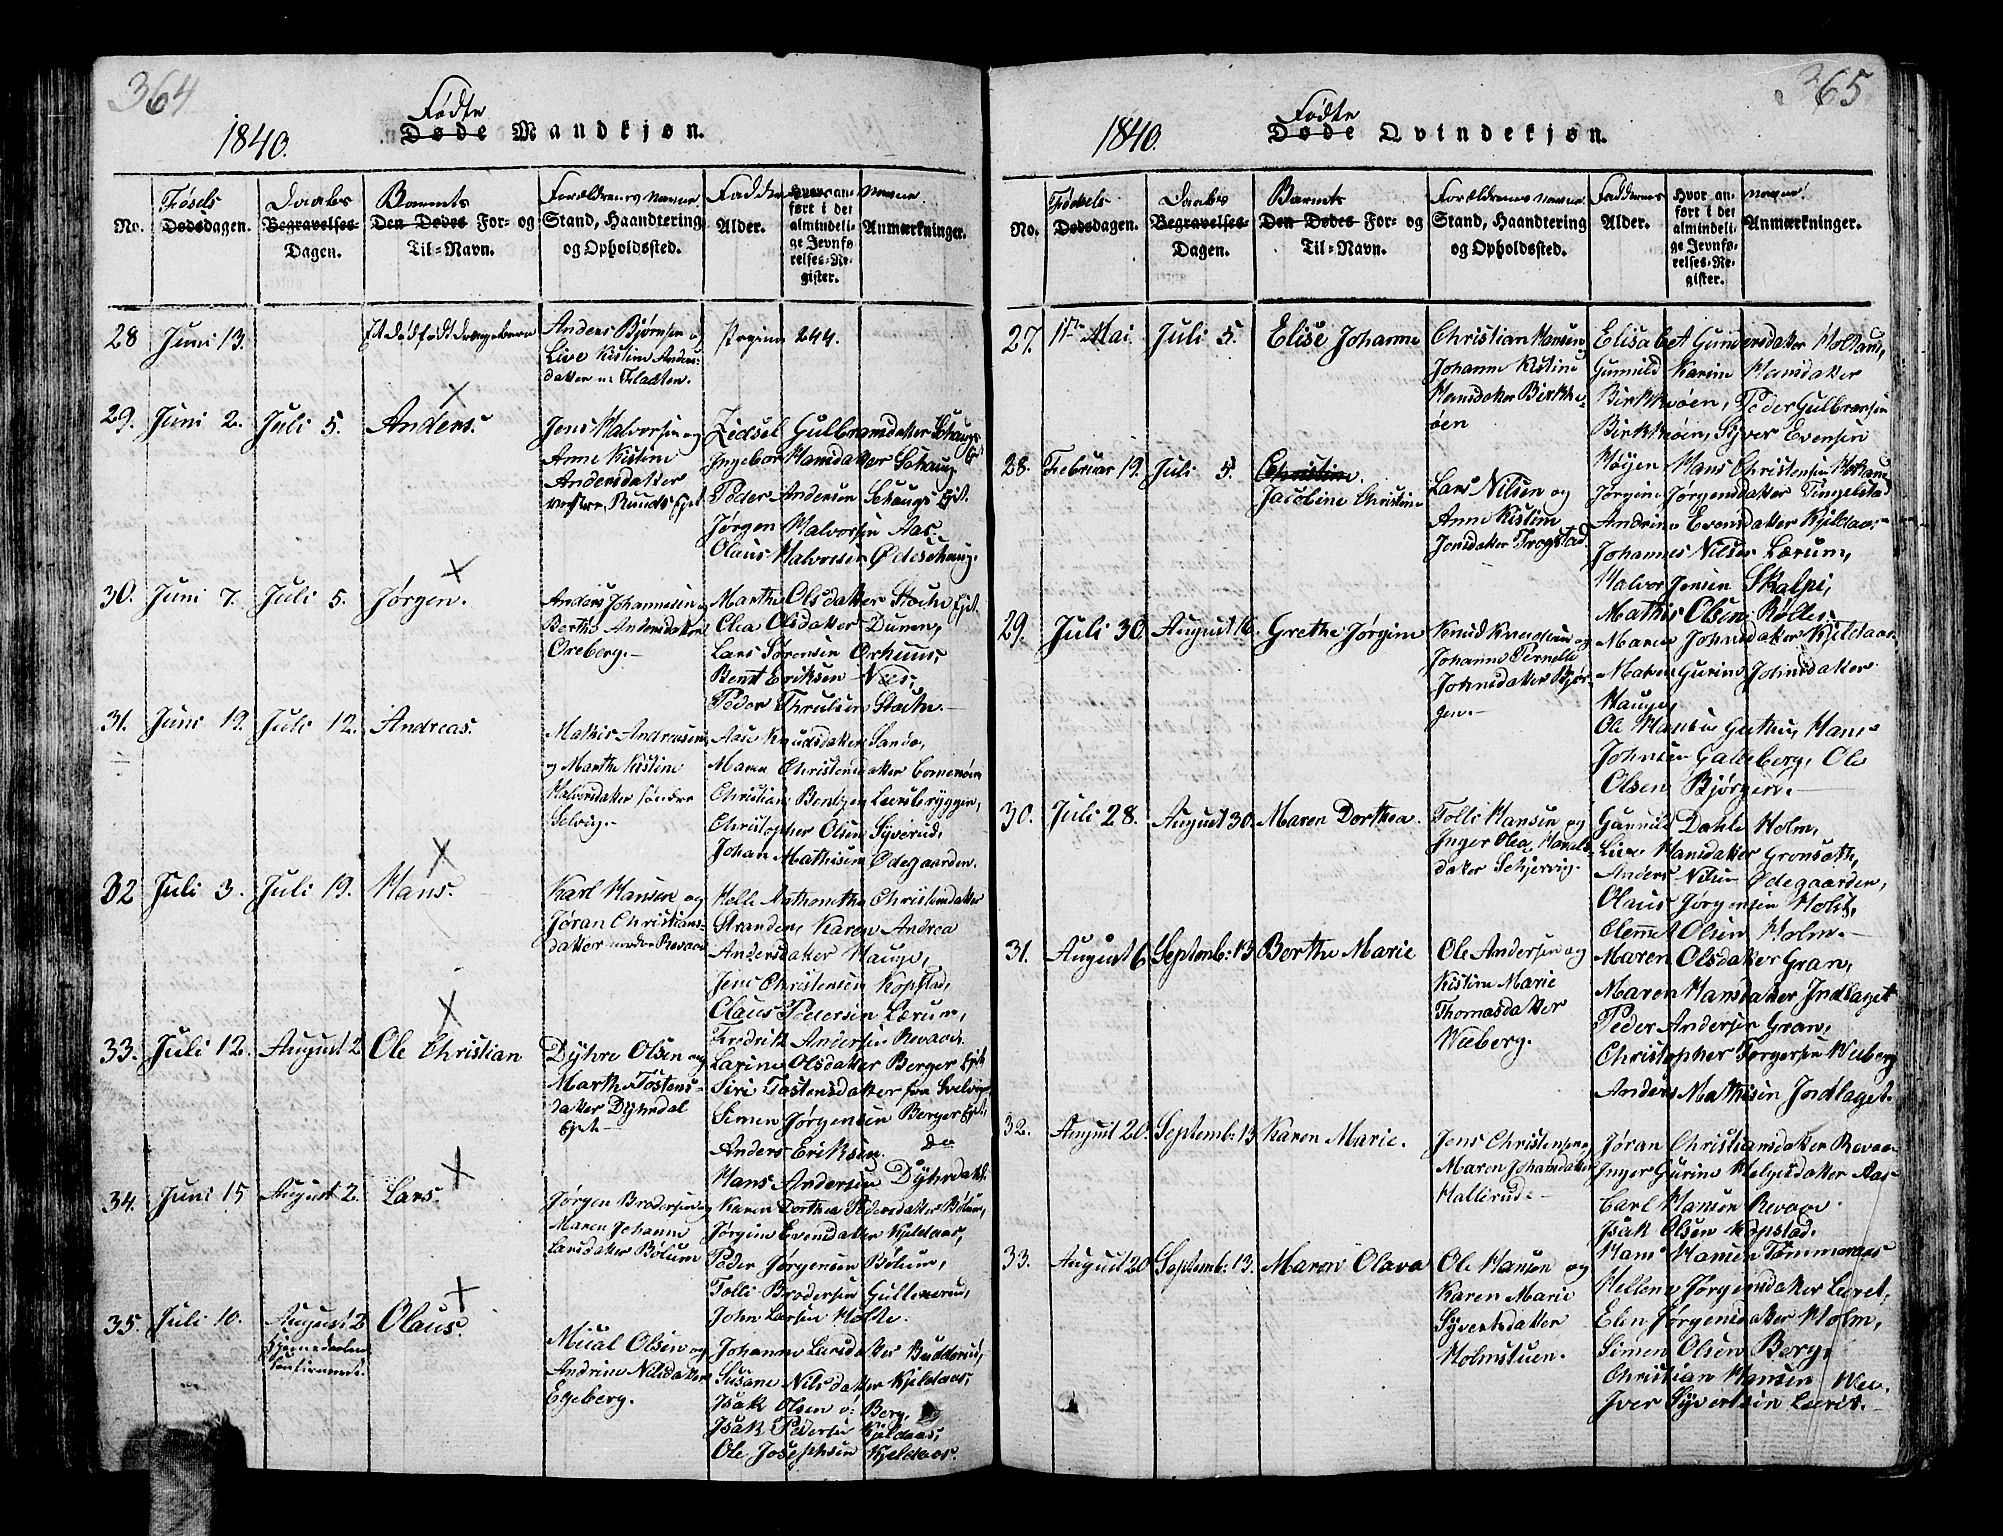 364
1840.
Fødte
Døde Mandkjøn.
No.
Føsels
Dødsdagen.
Daabs
Begravelses-
Dagen.
Barnets
Den Dødes For- og
Til-Navn.
Forældrenes Navne
Stand, Haandtering
og Opholdssted.
Fadder
Alder.
Hvor an-
ført i det
almindeli-
ge Jevnfø-
relses-Re-
gister.
Navne
Anmærkninger.
28 Juni 13. Et dødfødt Drengebarn
Anders Bjørnsen o
Live Kistine Anders-
datter n: Fladten.
Pagina 244.
29. Juni 2. Juli 5. Anders.
Jens Halvorsen og
Anne Kistine
Andersdatter
Zidsel Gulbransdatter Schaugs Ejet
Ingebor Hansdatter Schaug
Peder Andersen Schaugs Ejet.
Jørgen Halvorsen Aas
Olaus Halvorsen Ødeschaug.
30. Juni 7. Juli 5. Jørgen.
Anders Johannesen o
Berthe Andersdatter
Oreberg.
Marthe Olsdatter Ejet.
Olea Olsdatter Dunen,
Lars Sørensen Orhuus,
Bent Eriksen Næs,
Peder Thrulsen
31. Juni 19. Juli 12. Andreas.
Mathis Andreasen
og Marthe Kistine
Halvorsdatter søndre
Selvig.
Aase Knudsdatter Sando,
Maren Christensdatter
Christian Bentzen Leersbryggen,
Christopher Olsen Syverud,
Johan Mathisen Ødegaarden.
32 Juli 3. Juli 19. Hans.
Karl Hansen og
Jøran Christians-
datter nordre Revaae
Helle Mathonetha Christensdatter
Stranden, Karen Andrea
Andersdatter Hauge,
Jens Christensen Kopstad,
Claus Pedersen Lærum,
Fredrik Andersen Revaae.
33. Juli 12. August 2 Ole Christian
Dyhre Olsen og
Marthe Tostens-
datter Dyhrdal
Ejet
Larine Olsdatter Berger Ejet
Siri Tostensdatter fra Svelvig
Simen Jørgensen Berger Ejet,
Anders Eriksen. Do
Hans Andersen Dyhrdahl
34. Juni 15 August 2. Lars.
Jørgen Brodersen og
Maren Johanne
Larsdatter Bølum
Karen Dorthea Pedersdatter Bølum,
Jørgine Evensdatter Kjeldaas,
Peder Jørgensen Bølum,
Tolle Brodersen Gullerud,
John Larsen Holte.
35. Juli 10. August 2 Olaus.
Hjemmedøbt
Mical Olsen og
Andrine Nilsdatter
Egeberg.
Johanne Larsdatter Budderud,
Susane Nilsdatter Kjeldaas,
Isak Olsen v: Berg,
Isak Pedersen Kjeldaas,
Ole Josephsen Kjeldaas.
365
1840.
Fødte
Døde Qvindekjøn.
No.
Fødsels
Dødsdagen.
Daabs
Begravelses-
Dagen.
Barnets
Den Dødes For- og
Til-Navn.
Forældrenes Navne
Stand, Haandtering
og Opholdssted.
Faddernes
Alder.
Hvor an-
ført i det
almindeli-
ge Jevnfø-
relses-Re-
gister.
Navne!
Anmærkninger.
27. 17de Mai. Juli 5. Elise Johanne
Christian Hansen
Johanne Kistine
Hansdatter Birkk-
øen
Elisabet Gundersdatter Holtan,
Gunnild Karine Hansdatter
Birkkøen, Peder Gulbransen
Birkkøen, Syver Evensen
Høyen Hans Christensen Holtan
28. Februar 19. Juli 5. Christine.
Jacobine Christine
Lars Nilsen og
Anne Kistine
Jonsdatter Trogstad
Jørgine Jørgensdatter Tingelstad
Andrine Evensdatter Kjeldaas
Johannes Nilsen Lærum,
Halvor Jensen Skalpi,
Mathis Olsen Bølle.
29. Juli 30. August 16. Grethe Jørgine
Knud Knudsen og
Johanne Pernelle
Johnsdatter Bjør-
gen.
Maren Johnsdatter Kjeldaas,
Maren Gurine Johnsdatter
Hauge,
Ole Hansen Guthu, Hans
Johnsen Galleberg, Ole
Olsen Bjørgen.
30. Juli 28. August 30. Maren Dorthea.
Tolle Hansen og
Inger Olea Hans-
datter Schjervig.
Gunnild Dahle Holm,
Live Hansdatter Gronsoth,
Anders Nilsen Ødegaarden,
Olaus Jørgensen Holst,
Clemmet Olsen Holm.
31. August 6 Septemb: 13 Berthe Marie
Ole Andersen og
Kistine Marie
Thomasdatter
Weberg.
Maren Olsdatter Gran,
Maren Hansdatter Indlaget
Peder Andersen Gran,
Christopher Torgersen Weberg
Anders Mathisen Indlaget.
32. August 20. Septemb: 13 Karen Marie.
Jens Christensen o
Maren Johansdatter
Hallerud
Jøran Christiansdatter Revaae
Inger Gurine Helgesdatter Aas
Carl Hansen Revaae
Isak Olsen Kopstad.
Hans Hansen Tømmeraas
33. August 20 Septemb: 13. Maren Olava
Ole Hansen og
Karen Marie
Syvertsdatter
Holmstuen.
Hellene Jørgensdatter Leret,
Elen Jørgensdatter Holm,
Simen Olsen Berg,
Christian Hansen Wee.
Iver Syvertsen Leret.